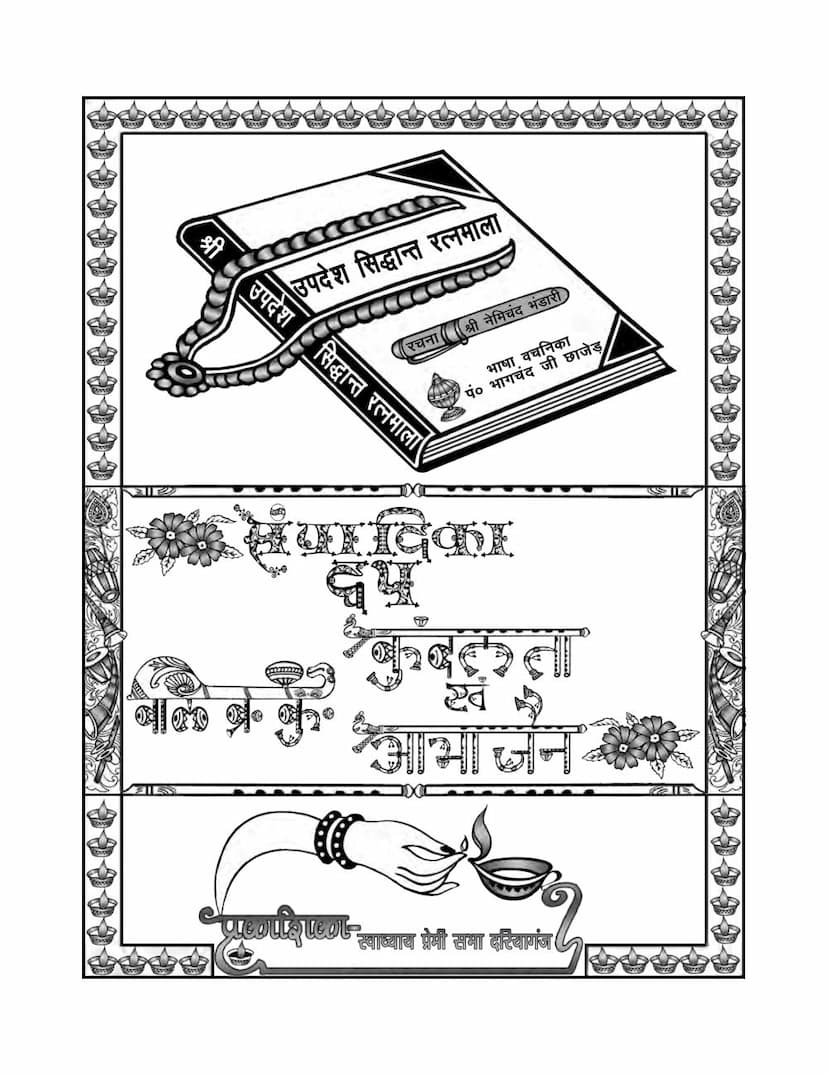 श्री
उपदेश
सिद्धान्त रत्नमाला
उपदेश सिद्धान्त रत्नमाला
रचना श्री नेमिचंद भंडारी
भाषा वचनिका
पं० भागचंद जी छाजेड़
संपादिका
द्वय
कुंदलता
बाल ब्र० कु०
एवं
आभा जैन
प्रकाशिका-स्वाध्याय प्रेमी सभा दरियागंज